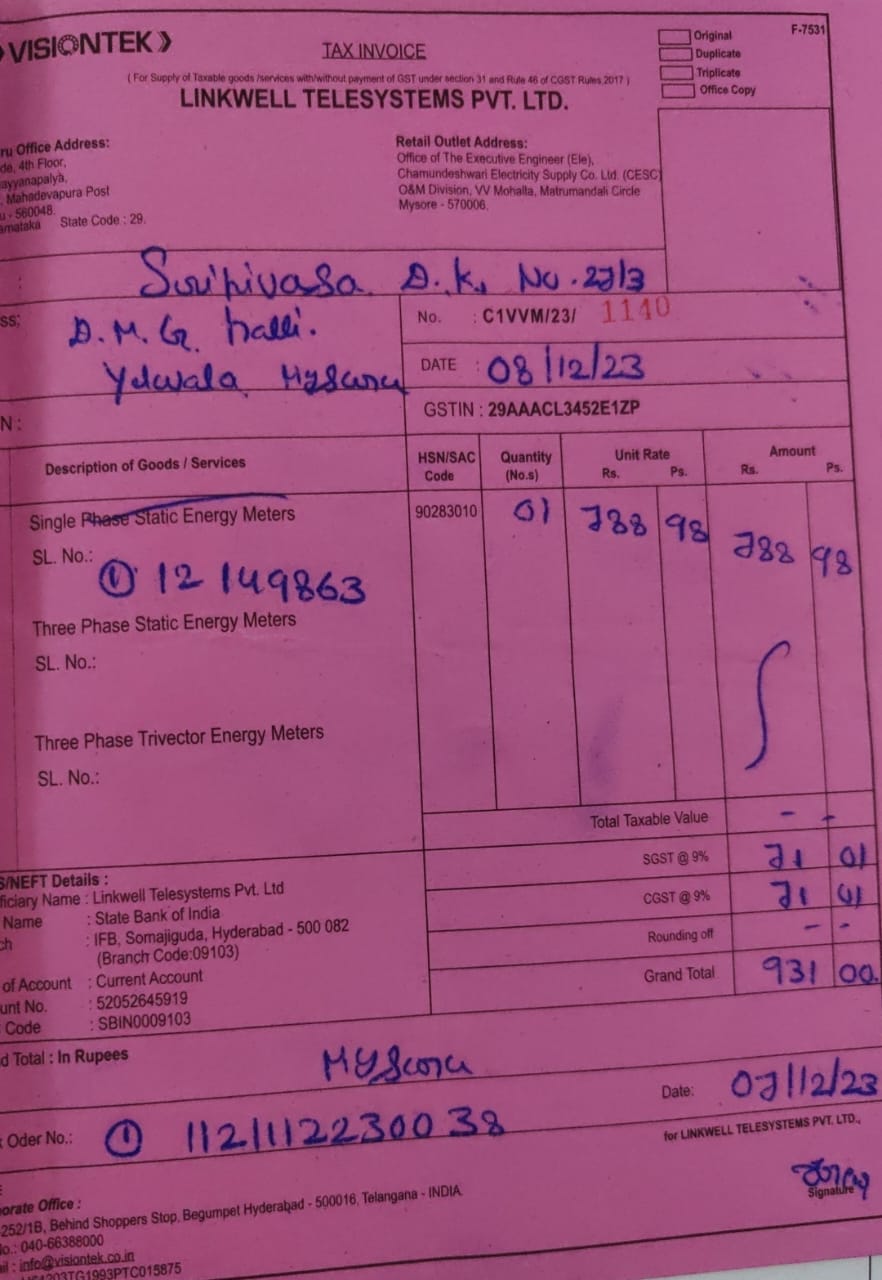 VISIONTEK
TAX INVOICE
Original
Duplicate
Triplicate
Office Copy
F-7531
( For Supply of Taxable goods /services with/without payment of GST under section 31 and Rule 46 of CGST Rules,2017 )
LINKWELL TELESYSTEMS PVT. LTD.
ru Office Address:
de, 4th Floor,
ayyanapalya,
, Mahadevapura Post
u - 560048.
arnataka State Code : 29.
Retail Outlet Address:
Office of The Executive Engineer (Ele),
Chamundeshwari Electricity Supply Co. Ltd. (CESC)
O&M Division, VV Mohalla, Matrumandali Circle
Mysore - 570006.
: Srinivasa D.K, No. 27/3
ss; D.M.G. halli.
Yelwala, Mysuru
No. : C1VVM/23/ 1140
DATE : 08/12/23
N : GSTIN : 29AAACL3452E1ZP
Description of Goods / Services HSN/SAC Code Quantity (No.s) Unit Rate Rs. Ps. Amount Rs. Ps.
Single Phase Static Energy Meters 90283010 01 788 98 788 98
SL. No.: ① 12149863
Three Phase Static Energy Meters
SL. No.:
Three Phase Trivector Energy Meters
SL. No.:
Total Taxable Value - -
SGST @ 9% 71 01
CGST @ 9% 71 01
Rounding off - -
Grand Total 931 00.
S/NEFT Details :
ficiary Name : Linkwell Telesystems Pvt. Ltd
Name : State Bank of India
ch : IFB, Somajiguda, Hyderabad - 500 082
(Branch Code:09103)
of Account : Current Account
unt No. : 52052645919
Code : SBIN0009103
d Total : In Rupees
Mysuru
Date: 07/12/23
Oder No.: ① 1121112230038
for LINKWELL TELESYSTEMS PVT. LTD.,
Signature
orate Office :
252/1B, Behind Shoppers Stop, Begumpet Hyderabad - 500016, Telangana - INDIA.
No.: 040-66388000
il : info@visiontek.co.in
203TG1993PTC015875